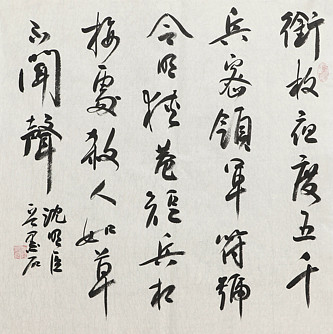 銜枚夜度五千
兵密領軍符號
令明狹巷短兵相
接處殺人如草
不聞聲
沈明臣